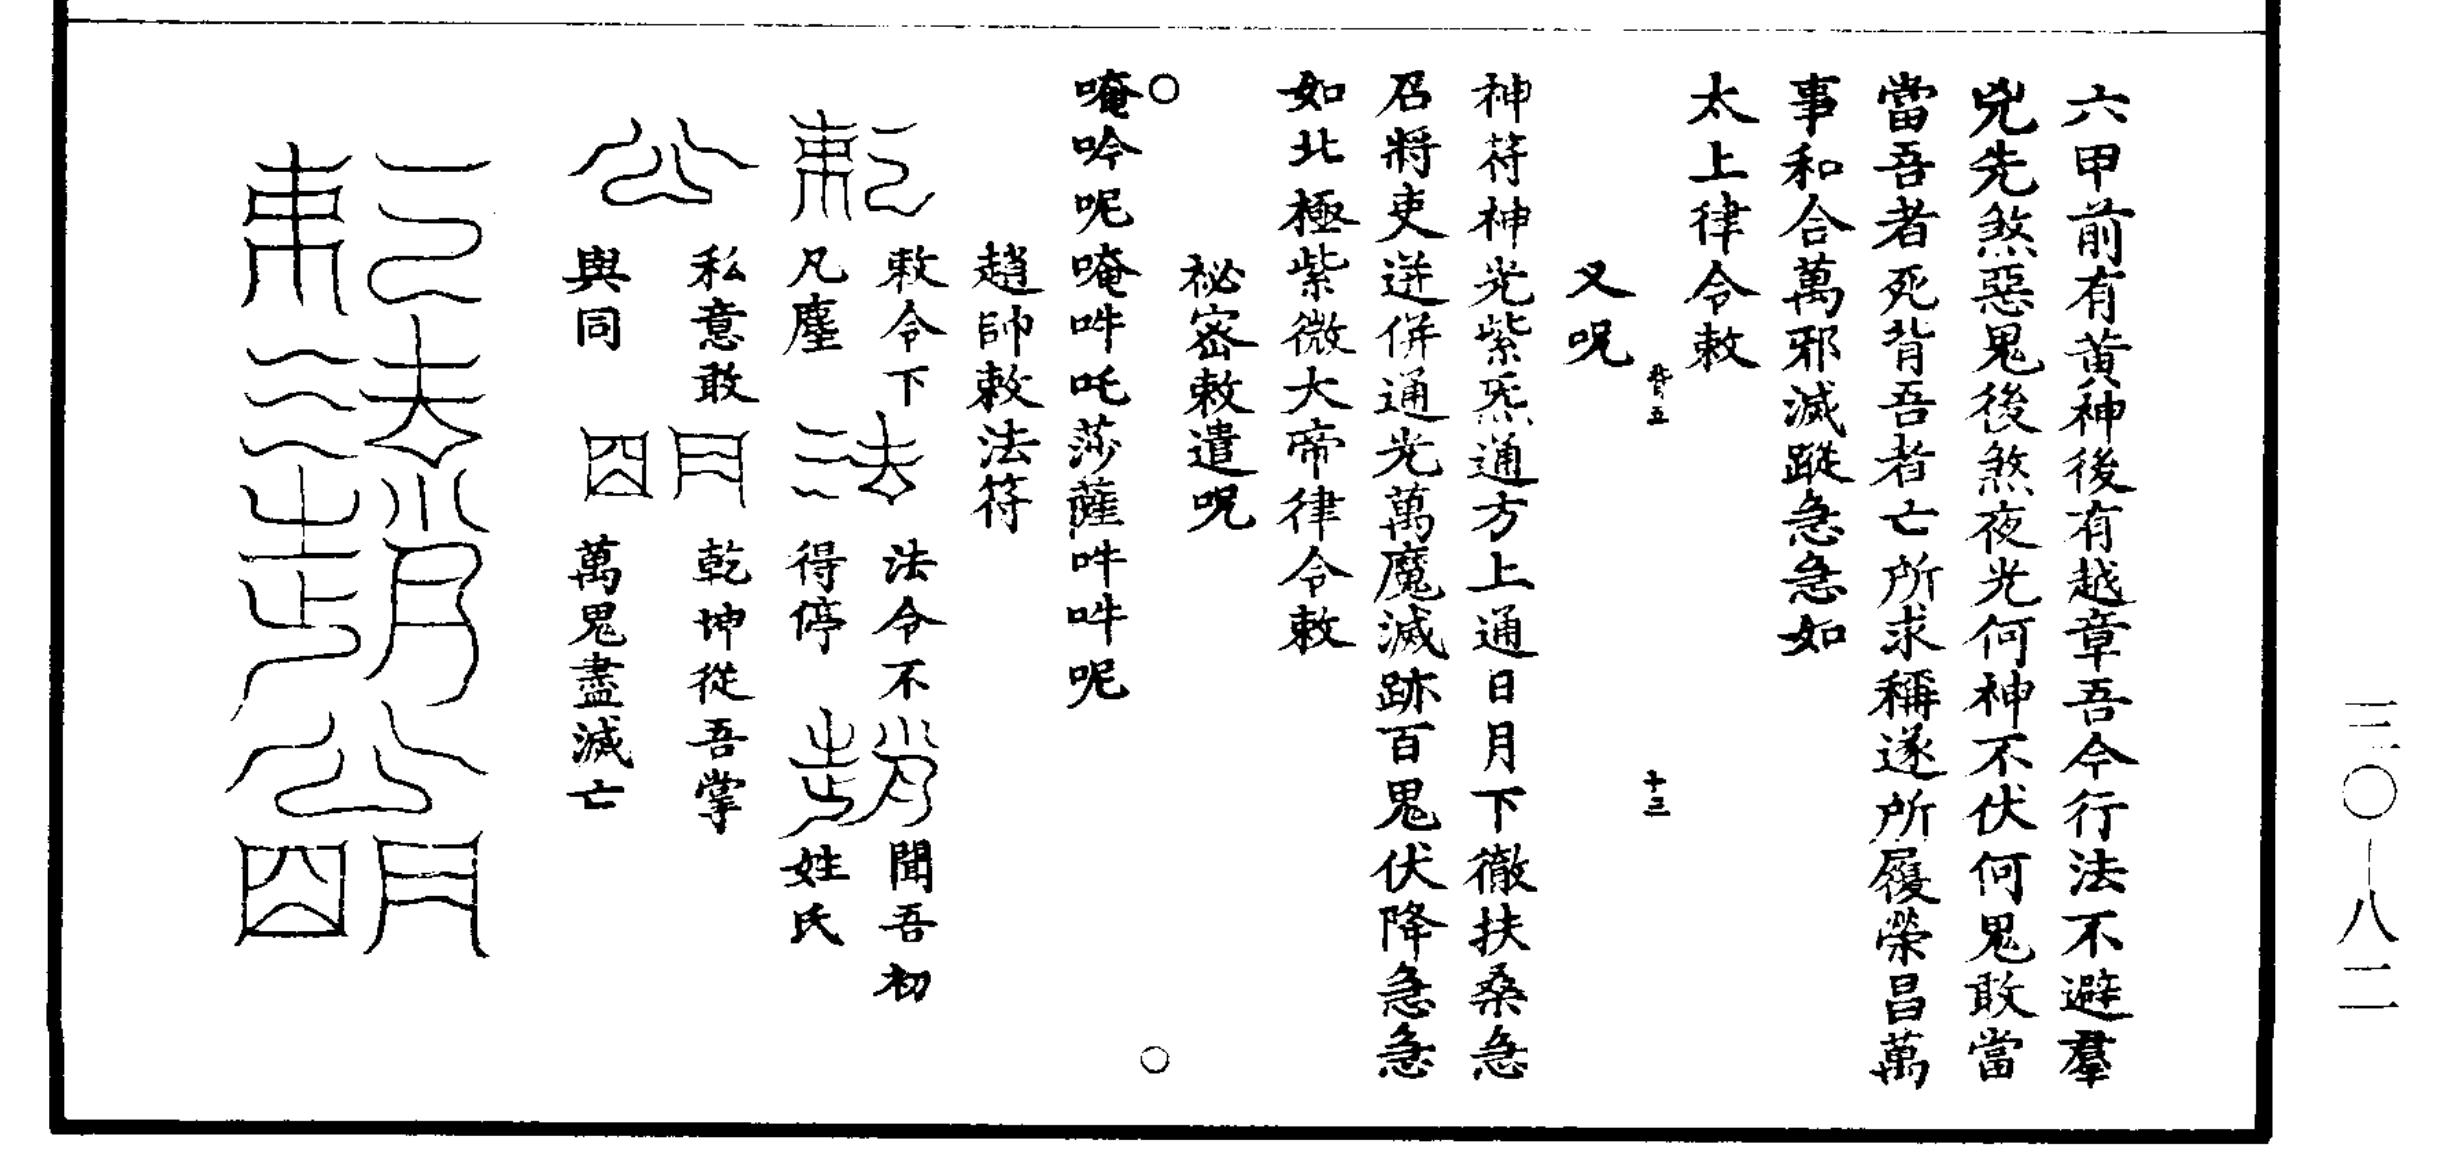 三〇—八二
六甲前有黄神後有越章吾今行法不避羣
兇先煞惡鬼後煞夜光何神不伏何鬼敢當
當吾者死背吾者亡所求稱遂所履榮昌萬
事和合萬邪滅蹤急急如
太上律令敕
十三
又呪
神符神光紫炁通方上通日月下徹扶桑急
召將吏迸併通光萬魔滅跡百鬼伏降急急
如北極紫微大帝律令敕
祕密敕遣呪
唵吟呢唵吽吒莎薩吽吽呢
趙帥敕法符
敕令下 法令不 聞吾初
凡塵 得停 姓氏
私意敢 乾坤從吾掌
與同 萬鬼盡滅亡